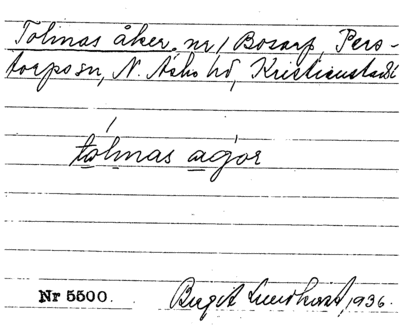 Tolmas åker, nr 1 Bosarp, Pers-
torps sn, N. Åsbo hd, Kristianstads l
tólmas agor
Nr 5500. Birgit Lundkvist, 1936.